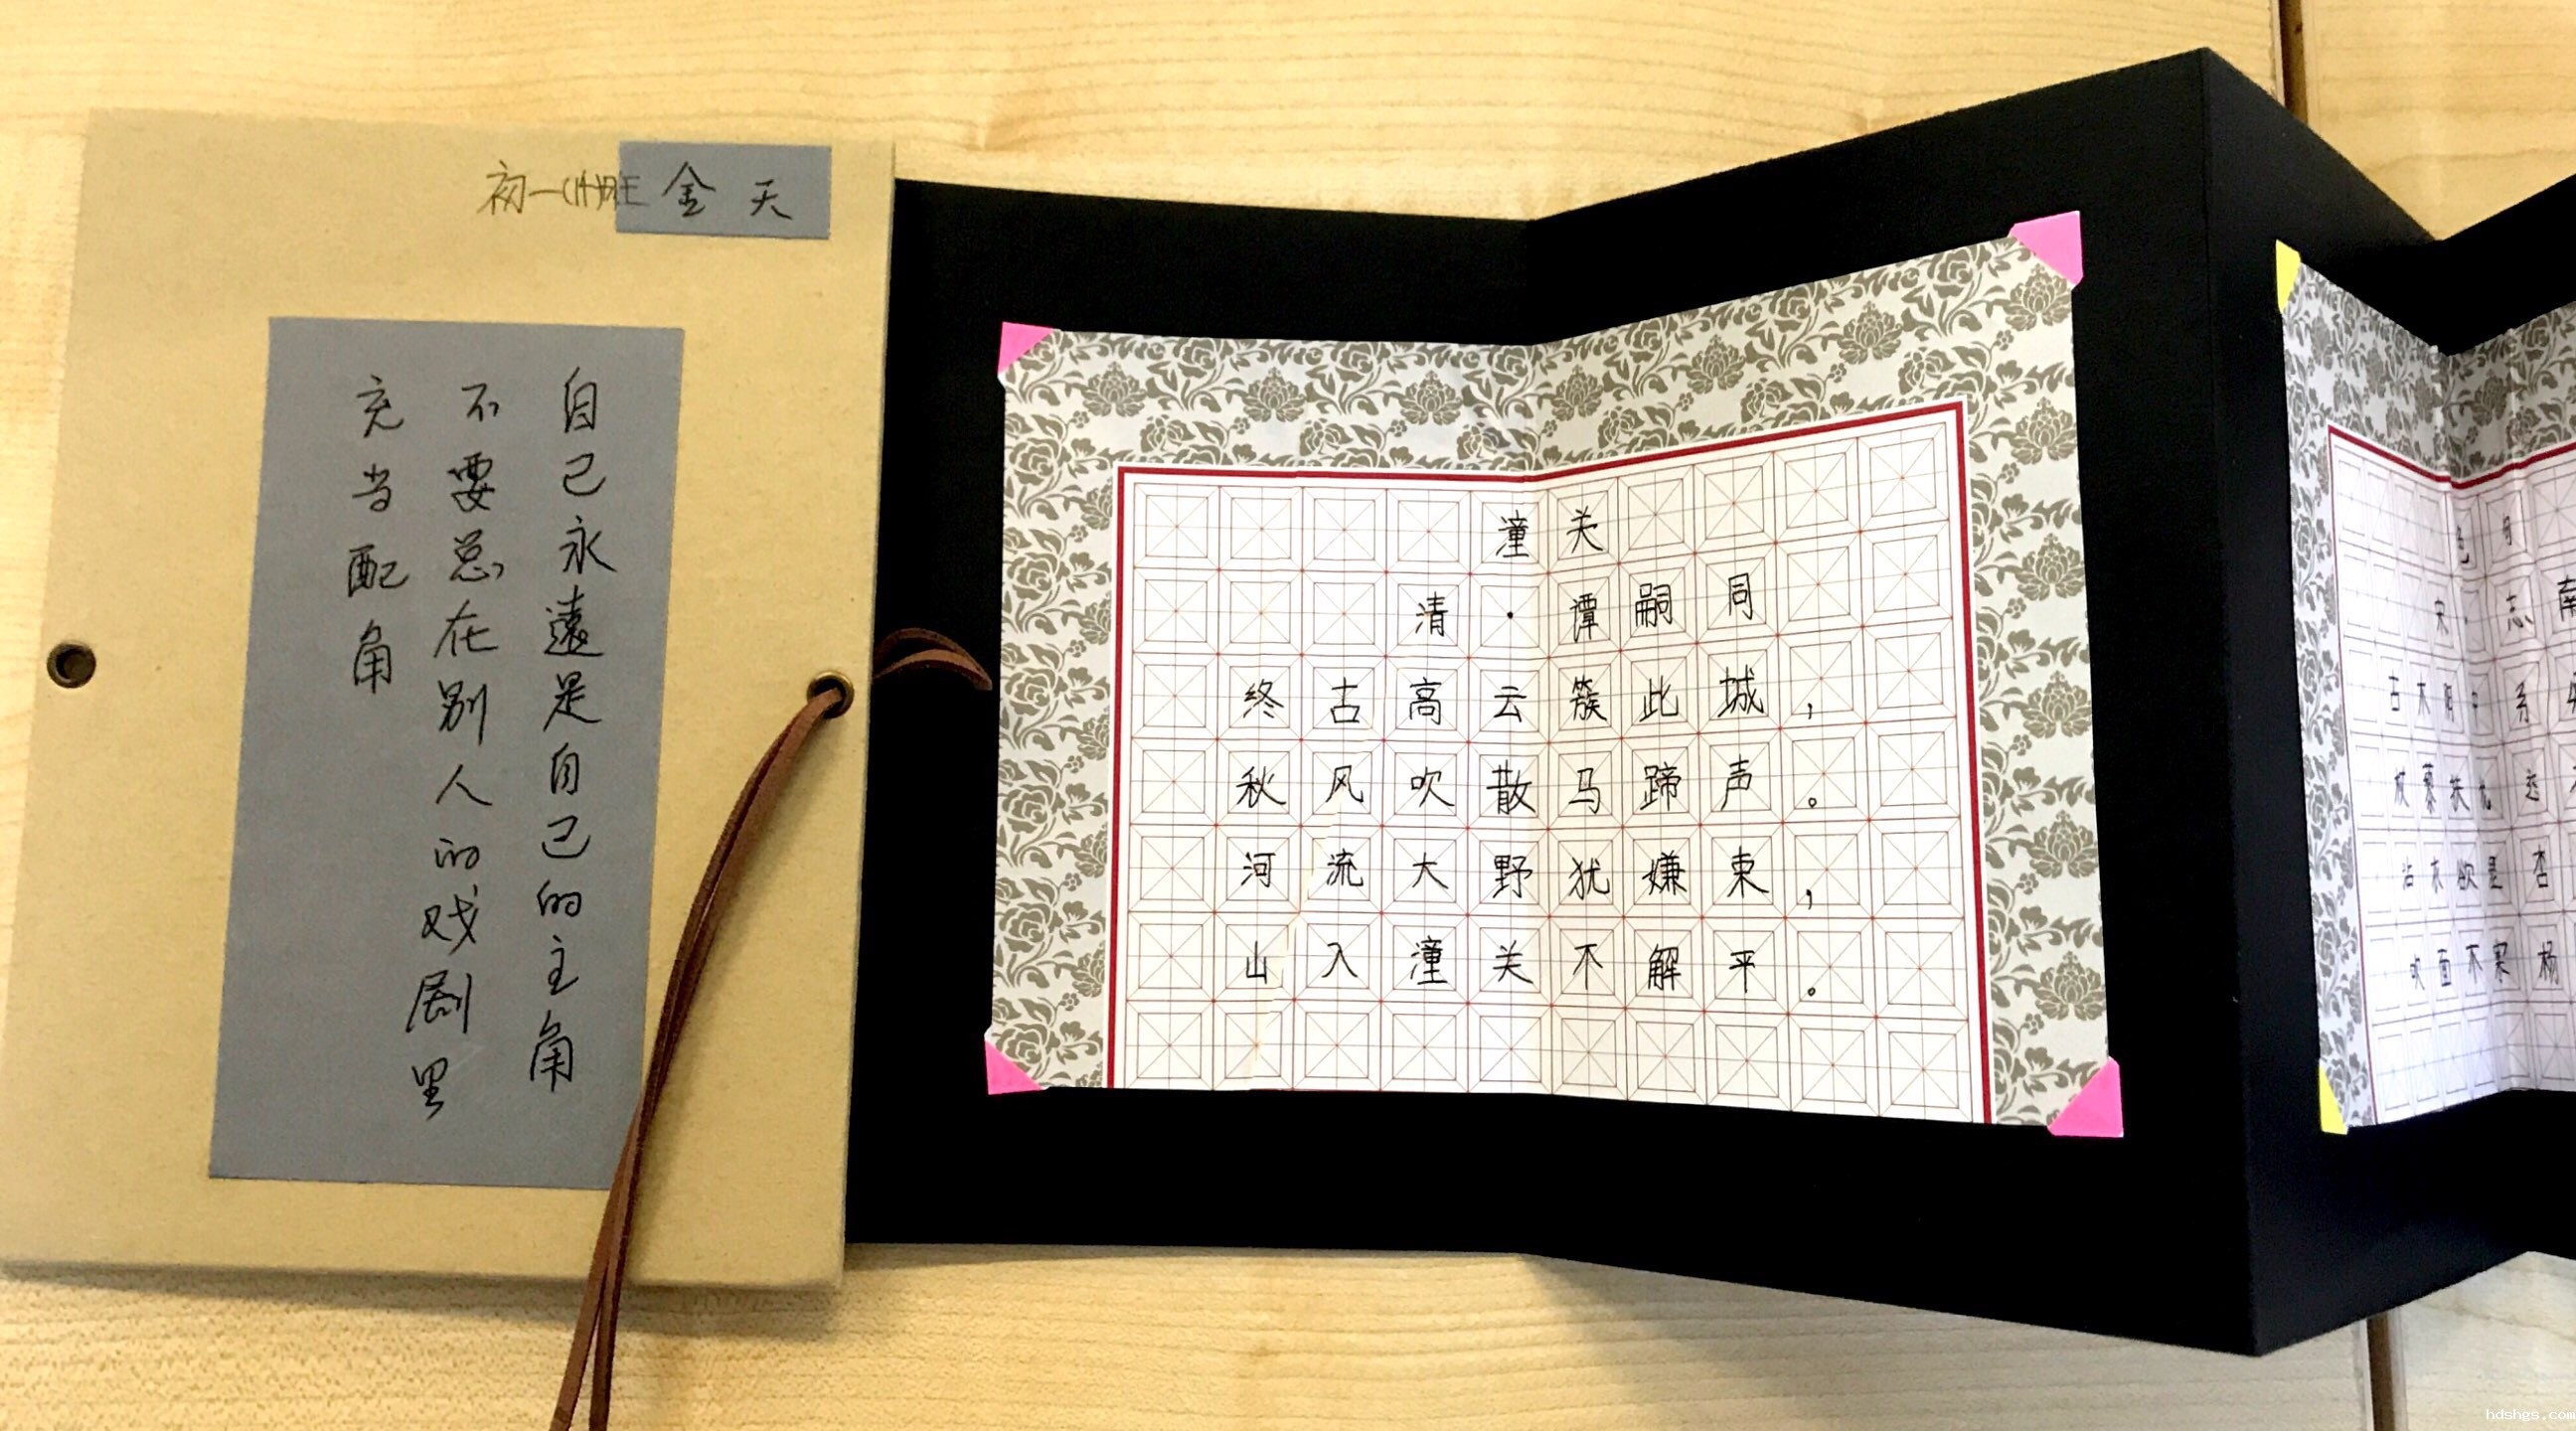 初一(14)班 金天
自己永遠是自己的主角
不要总在别人的戏剧里
充当配角
潼关
清·谭嗣同
终古高云簇此城，
秋风吹散马蹄声。
河流大野犹嫌束，
山入潼关不解平。
宋·志南
古木阴中系
杖藜扶
沾衣欲湿杏
吹面不寒杨
hdshgs.com